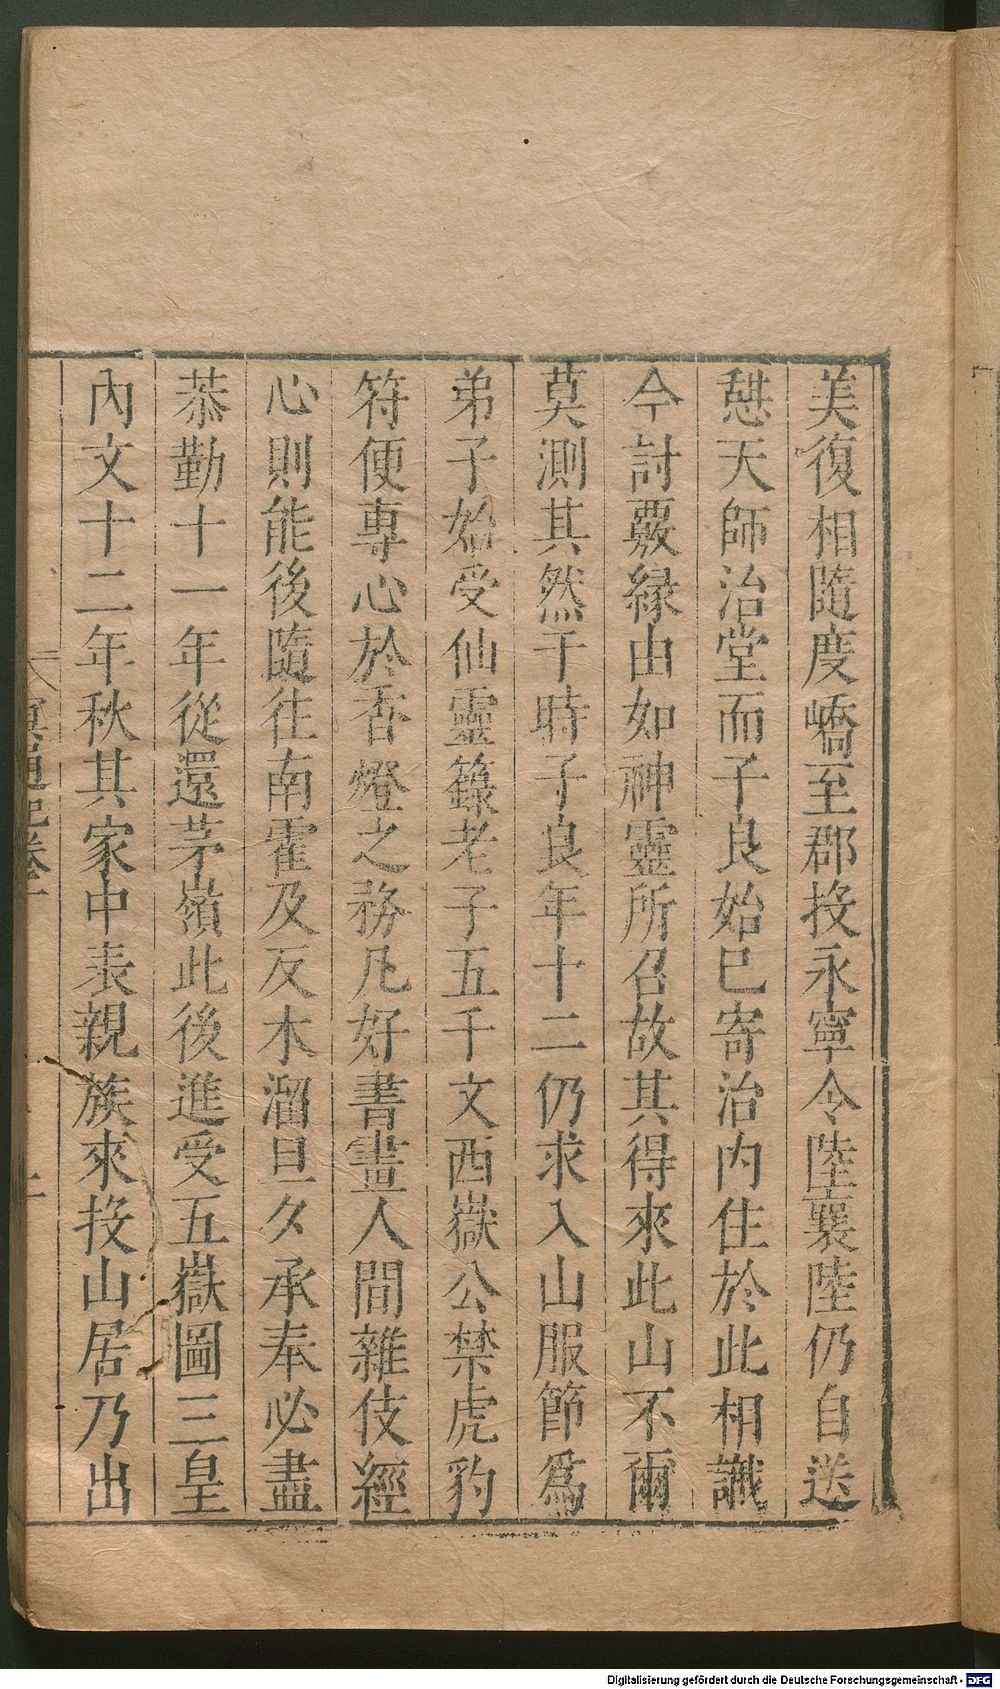 美復相隨度嶠至郡投永寧令陸襄陸仍自送
憇天師治堂而子良始已寄治内住於此相識
今討覈緣由如神靈所召故其得來此山不爾
莫測其然于時子良年十二仍求入山服節爲
弟子始受仙靈籙老子五千文西嶽公禁虎豹
符便專心於香燈之務凡好書畫人間雜伎經
心則能後隨往南霍及反木溜旦夕承奉必盡
恭勤十一年從還茅嶺此後進受五嶽圖三皇
內文十二年秋其家中表親族來投山居乃出
冥通記卷
Digitalisierung gefördert durch die Deutsche Forschungsgemeinschaft - DFG